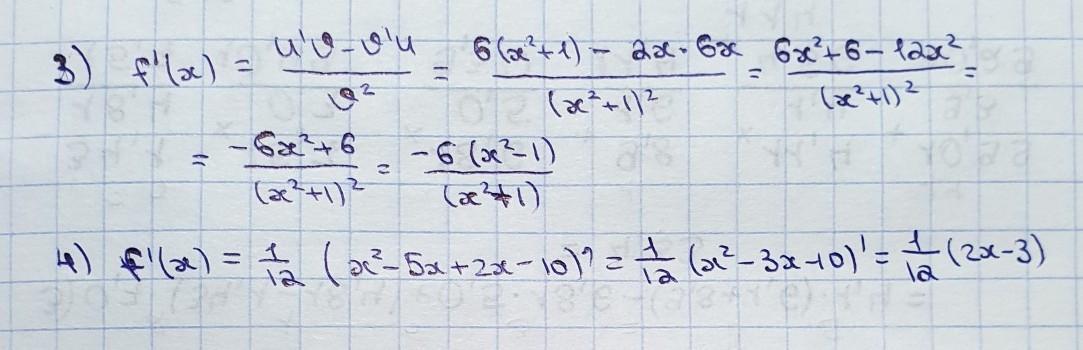 3) f'(x) = (u'v - v'u)/v² = (6(x²+1) - 2x·6x)/(x²+1)² = (6x²+6-12x²)/(x²+1)² =
= (-6x²+6)/(x²+1)² = (-6(x²-1))/(x²+1)
4) f'(x) = 1/12 (x²-5x+2x-10)' = 1/12 (x²-3x-10)' = 1/12 (2x-3)